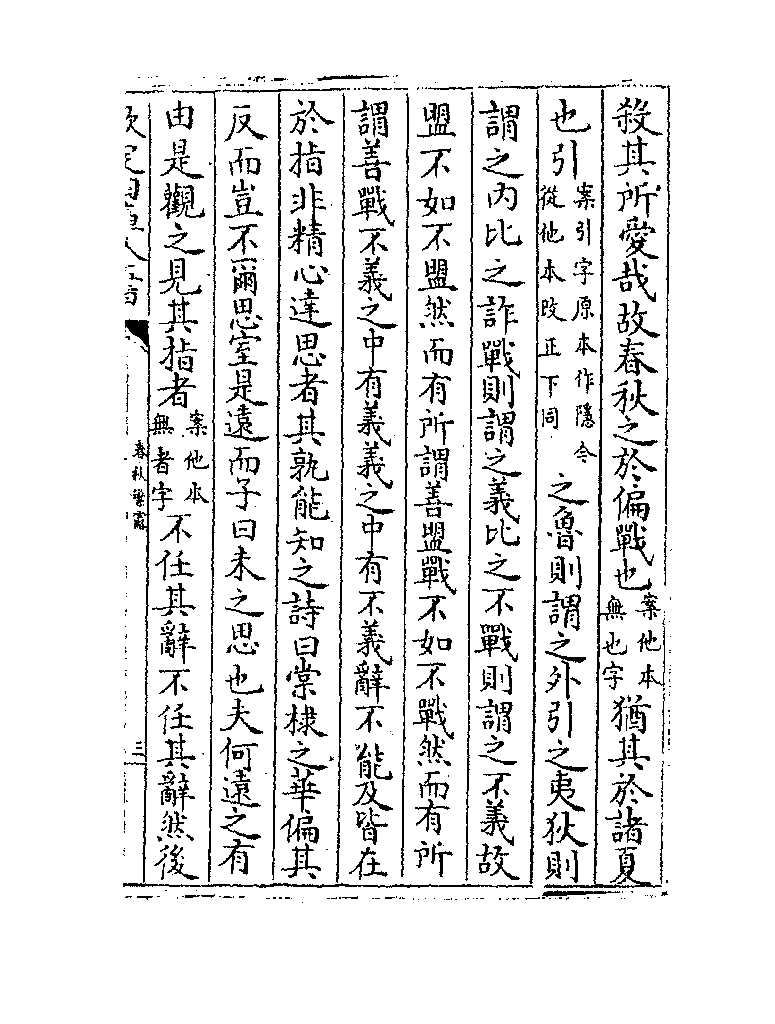 殺其所愛哉故春秋之於偏戰也案他本無也字猶其於諸夏
也引案引字原本作隱今從他本改正下同之魯則謂之外引之夷狄則
謂之内比之詐戰則謂之義比之不戰則謂之不義故
盟不如不盟然而有所謂善盟戰不如不戰然而有所
謂善戰不義之中有義義之中有不義辭不能及皆在
於指非精心達思者其孰能知之詩曰棠棣之華偏其
反而豈不爾思室是遠而子曰未之思也夫何遠之有
由是觀之見其指者案他本無者字不任其辭不任其辭然後
欽定四庫全書
春秋繁露
三